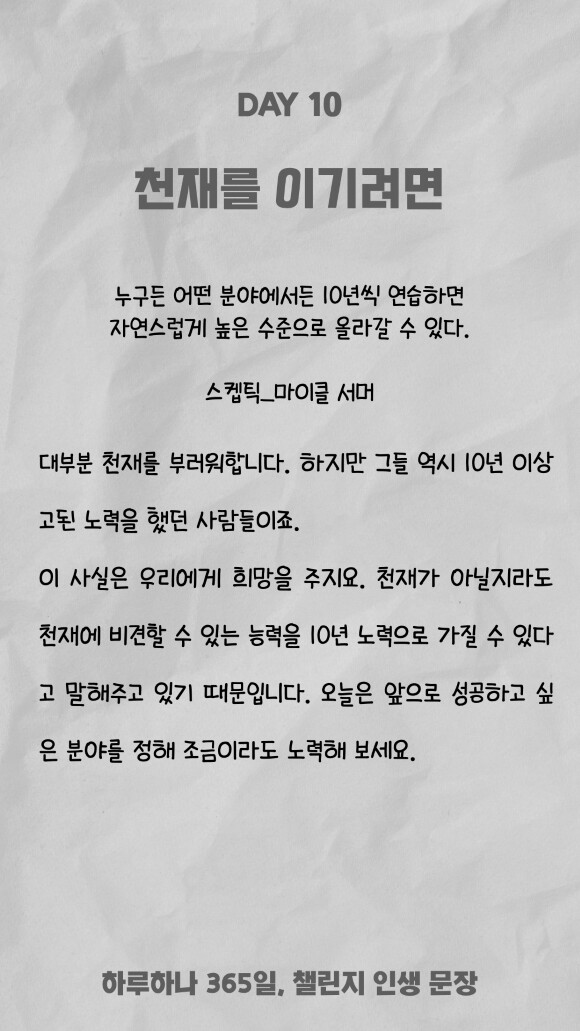 DAY 10
천재를 이기려면
누구든 어떤 분야에서든 10년씩 연습하면
자연스럽게 높은 수준으로 올라갈 수 있다.
스켑틱_마이클 서머
대부분 천재를 부러워합니다. 하지만 그들 역시 10년 이상
고된 노력을 했던 사람들이죠.
이 사실은 우리에게 희망을 주지요. 천재가 아닐지라도
천재에 비견할 수 있는 능력을 10년 노력으로 가질 수 있다
고 말해주고 있기 때문입니다. 오늘은 앞으로 성공하고 싶
은 분야를 정해 조금이라도 노력해 보세요.
하루하나 365일, 챌린지 인생 문장